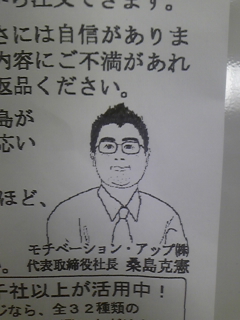 ら注文できます。
さには自信がありま
内容にご不満があれ
返品ください。
島が
応い
ほど、
モチベーション・アップ㈱
代表取締役社長 桑島克憲
千社以上が活用中！
じなら、全32種類の